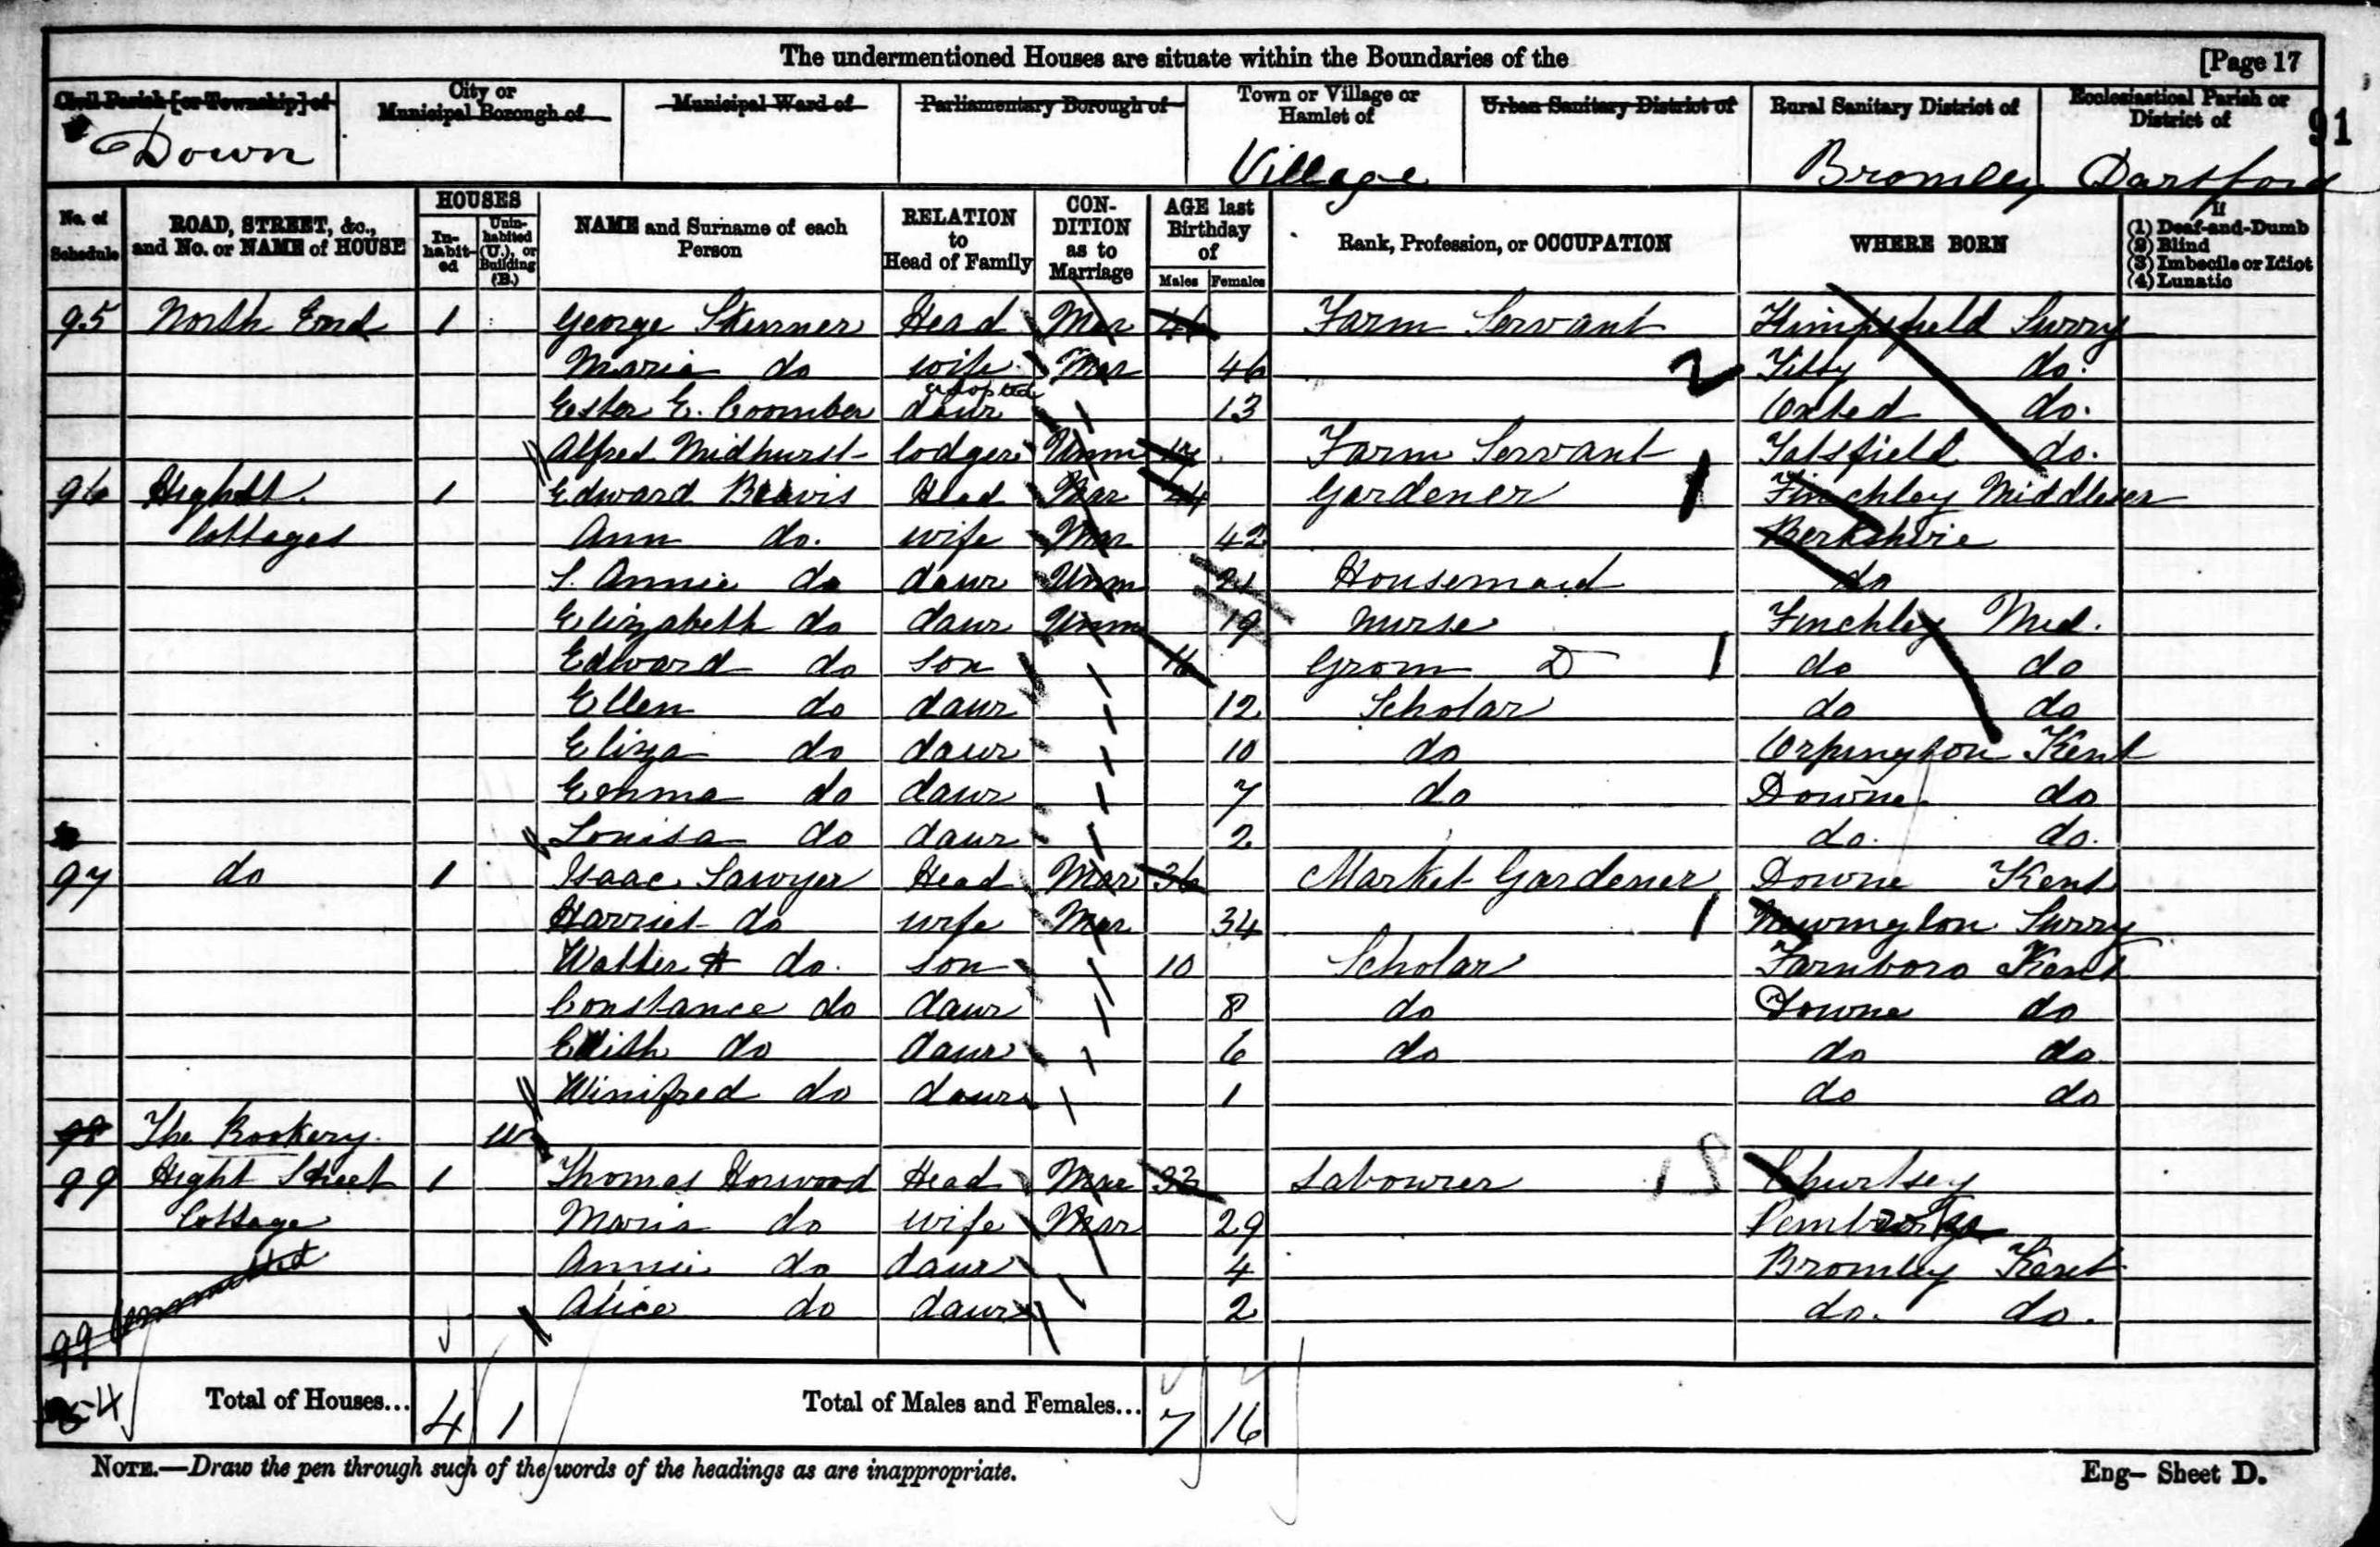 The undermentioned Houses are situate within the Boundaries of the [Page 17
Civil Parish [or Township] of City or Municipal Borough of Municipal Ward of Parliamentary Borough of Town or Village or Hamlet of Urban Sanitary District of Rural Sanitary District of Ecclesiastical Parish or District of
91
Down Village Bromley Dartford
No. of Schedule ROAD, STREET, &c., and No. or NAME of HOUSE HOUSES In-habit-ed Unin-habited (U.), or Building (B.) NAME and Surname of each Person RELATION to Head of Family CON-DITION as to Marriage AGE last Birthday of Males Females Rank, Profession, or OCCUPATION WHERE BORN If (1) Deaf-and-Dumb (2) Blind (3) Imbecile or Idiot (4) Lunatic
95 North End 1 George Head Mar 46 Farm Servant Surry
Maria do wife Mar 46 2 do.
Ester E. Coomber adopted daur 13 Oxted do.
Alfred Midhurst lodger Unm Farm Servant Tatsfield do.
96 1 Edward Head Mar 44 Gardener 1 Finchley Middlesex
Cottages Ann do. wife Mar 42 Berkshire
S. Annie do daur Unm 21 Housemaid do
Elizabeth do daur Unm 19 Nurse Finchley Mid.
Edward do son 16 Grom D 1 do do
Ellen do daur 12 Scholar do do
Eliza do daur 10 do Orpington Kent
Emma do daur 7 do Downe. do
Louisa do daur 2 do. do.
97 do 1 Isaac Sawyer Head Mar 36 Market Gardener Downe Kent
Harriet do wife Mar 34 1 Newington Surry
Walter H do. son 10 Scholar Farnboro Kent
Constance do daur 8 do Downe do
Edith do daur 6 do do do
Winifred do daur 1 do do
98 The Rookery. U
99 Hight Street 1 Thomas Horwood Head Mar 33 Labourer 18 Churtsey
Cottage Maria do wife Mar 29 Pembroke
Annie do daur 4 Bromley Kent
Alice do daur 2 do. do.
99
4 Total of Houses... 4 1 Total of Males and Females... 7 16
NOTE.—Draw the pen through such of the words of the headings as are inappropriate. Eng– Sheet D.